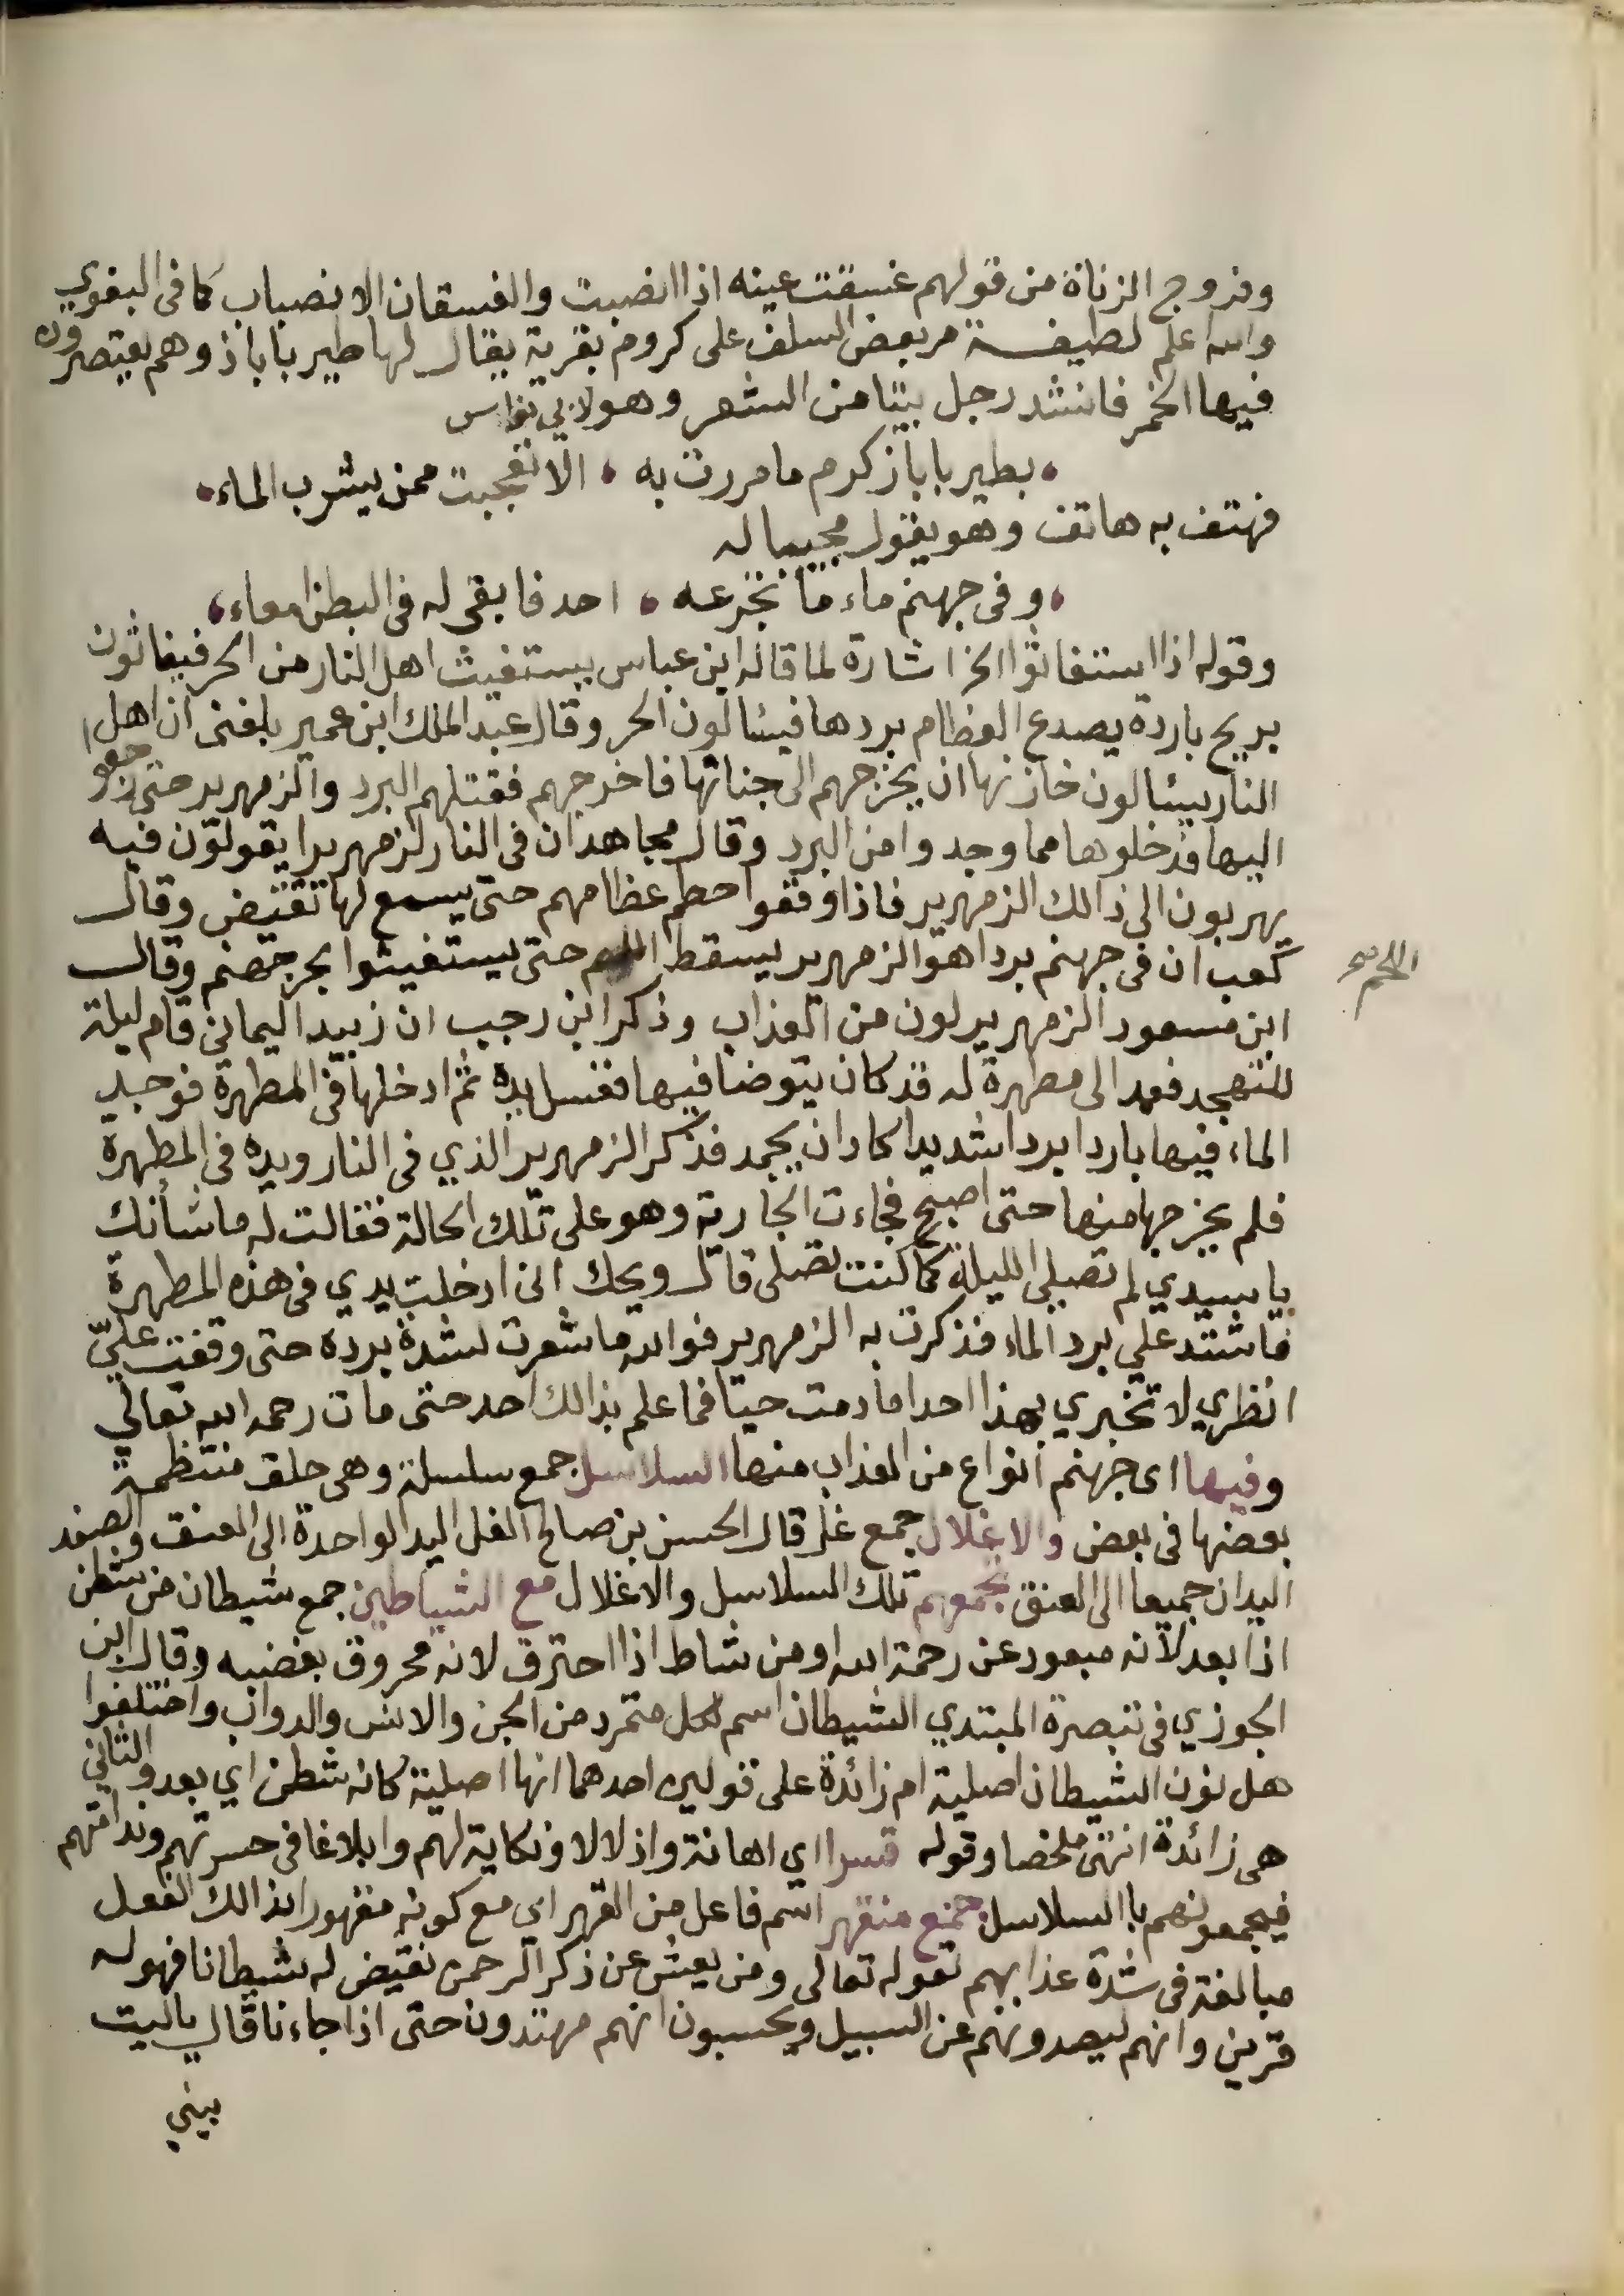 وفروج الزناة من قولهم غسقت عينه اذا انضبت والغسقان الانصباب كما في البغوي
والله اعلم لطيفة مر بعض السلف على كروم بقرية يقال لها طير باباذ وهم يعتصرون
فيها الخمر فانشد رجل بيتا من الشعر وهو لابي نواس
بطير باباذ كرم ما مررت به ، الا تعجبت ممن يشرب الماء
فهتف به هاتف وهو يقول مجيبا له
وفي جهنم ماء ما تجرعه ، احد فابقى له في البطن امعاء
وقوله اذا استغاثوا الخ اشارة لما قاله ابن عباس يستغيث اهل النار من الحر فيغاثون
بريح باردة يصدع العظام بردها فيسالون الحر وقال عبد الملك ابن عمير بلغني ان اهل
النار يسالون خازنها ان يخرجهم الى جناتها فاخرجهم فقتلهم البرد والزمهرير حتى رجعوا
اليها فدخلوها مما وجدوا من البرد وقال مجاهد ان في النار لزمهريرا يقولون فيه
يهربون الى ذالك الزمهرير فاذا وقفوا حطم عظامهم حتى يسمع لها تقيض وقال
كعب ان في جهنم بردا هو الزمهرير يسقط اللحم حتى يستغيثوا بحر جهنم وقال
اللحم صح
ابن مسعود الزمهرير لون من العذاب وذكر ابن رجب ان زبيد اليماني قام ليلة
للتهجد فعمد الى مطهرة له قد كان يتوضا فيها فغسل يده ثم ادخلها في المطهرة فوجد
الماء فيها باردا بردا شديدا كاد ان يجمد فذكر الزمهرير الذي في النار ويده في المطهرة
فلم يخرجها منها حتى اصبح فجاءت الجارية وهو على تلك الحالة فقالت له ما شأنك
يا سيدي لم تصلي الليلة كما كنت تصلى قال ويحك اني ادخلت يدي في هذه المطهرة
فاشتد علي برد الماء فذكرت به الزمهرير فوالله ما شعرت لشدة برده حتى وقفت عليّ
انظري لا تخبري بهذا احدا ما دمت حيا فما علم بذالك احد حتى مات رحمه الله تعالى
وفيها اي جهنم انواع من العذاب منها السلاسل جمع سلسلة وهي حلق منتظمة
بعضها في بعض والاغلال جمع غل قال الحسن بن صالح الغل اليد الواحدة الى العنق والصفد
اليدان جميعا الى العنق تجمعهم تلك السلاسل والاغلال مع الشياطين جمع شيطان من شطن
اذا بعد لانه مبعود عن رحمة الله او من شاط اذا احترق لانه محروق بغضبه وقال ابن
الجوزي في تبصرة المبتدي الشيطان اسم لكل متمرد من الجن والانس والدواب واختلفوا
هل نون الشيطان اصلية ام زائدة على قولين احدهما انها اصلية كانه شطن اي بعد والثاني
هي زائدة انتهى ملخصا وقوله قسرا اي اهانة واذلالا ونكاية لهم وابلاغا في حسرتهم وندامتهم
فيجمعونهم بالسلاسل جميع منقهر اسم فاعل من القهر اي مع كونه مقهورا بذالك الفعل
مبالغة في شدة عذابهم لقوله تعالى ومن يعش عن ذكر الرحمن نقيض له شيطانا فهو له
قرين وانهم ليصدونهم عن السبيل ويحسبون انهم مهتدون حتى اذا جاءنا قال ياليت
بيني